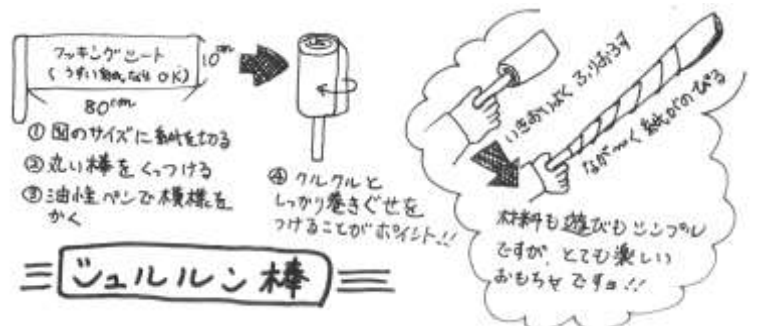 クッキングシート
(うすい紙ならOK)
10cm
80cm
①図のサイズに紙を切る
②丸い棒をくっつける
③油性ペンで模様を
かく
④クルクルと
しっかり巻きぐせを
つけることがポイント!!
いきおいよくふりおろす
なが〜く紙がのびる
材料も遊びもシンプル
ですが、とても楽しい
おもちゃですョ!!
ジュルルン棒